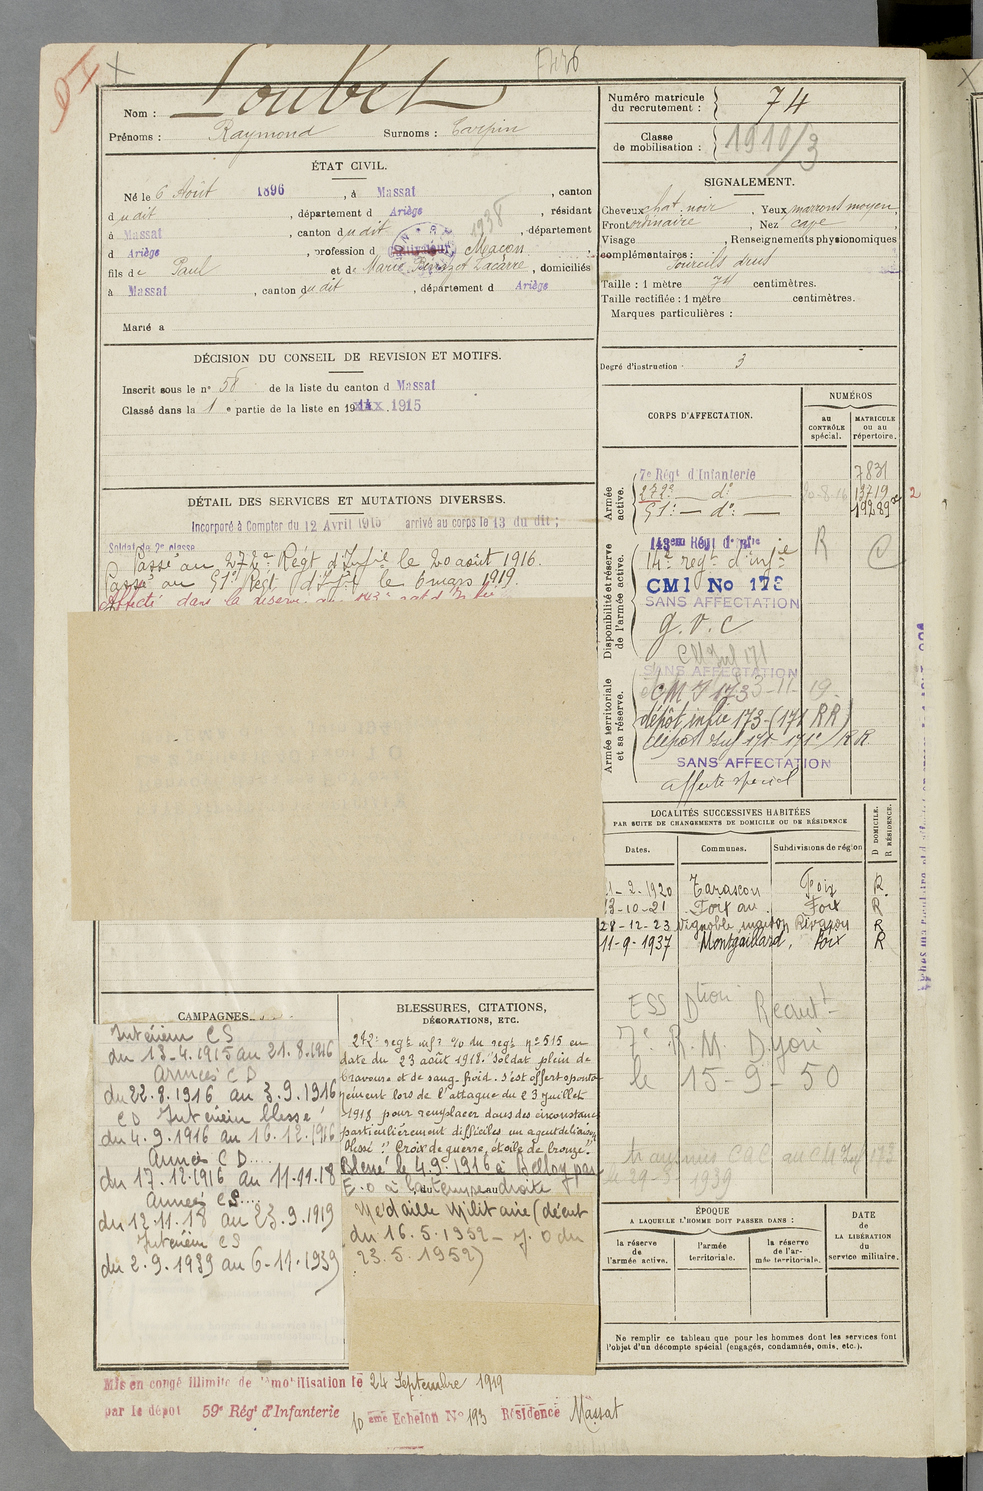 7426
Nom : Loubet
Prénoms : Raymond Surnoms : Carpin
ÉTAT CIVIL.
Né le 6 Août 1896, à Massat, canton
dudit, département d Ariège, résidant
à Massat, canton dudit, département
d Ariège, profession d Cultivateur, Maçon 1938
fils de Paul et de Marie Lacarre, domiciliés
à Massat, canton dudit, département d Ariège
Marié à
DÉCISION DU CONSEIL DE REVISION ET MOTIFS.
Inscrit sous le n° 58 de la liste du canton d Massat
Classé dans la 1 e partie de la liste en 1915
DÉTAIL DES SERVICES ET MUTATIONS DIVERSES.
Incorporé à Compter du 12 Avril 1915 arrivé au corps le 13 du dit ;
Soldat de 2e classe
Passé au 272e Régt d'Infie le 20 août 1916.
Passé au 51e Régt d'Inf. le 6 mars 1919.
Affecté dans la réserve au 143e
CAMPAGNES.
Intérieur CS
du 13-4.1915 au 21.8.1916
Armées CD
du 22.8.1916 au 3.9.1916
CD Intérieur blessé
du 4.9.1916 au 16.12.1916
Armées CD
du 17.12.1916 au 11.11.18
Armées CS
du 12.11.18 au 23.9.1919
Intérieur CS
du 2.9.1939 au 6-11.1939
BLESSURES, CITATIONS,
DÉCORATIONS, ETC.
272e regt inf. % du regt n° 515 en
date du 23 août 1918. "Soldat plein de
bravoure et de sang-froid. s'est offert sponta
nément lors de l'attaque du 23 juillet
1918 pour remplacer dans des circonstances
particulièrement difficiles un agent de liaison
blessé". Croix de guerre, étoile de bronze.
Blessé le 4.9.1916 à Belloy par
E.O à la tempe droite
Médaille Militaire (décret
du 16.5.1952 - J.O du
23.5.1952)
Mis en congé illimité de démobilisation le 24 Septembre 1919
par le dépôt 59e Régt d'Infanterie 10 ème Echelon N° 193 Résidence Massat
Numéro matricule
du recrutement : 74
Classe
de mobilisation : 1910/3
SIGNALEMENT.
Cheveux chat. noir, Yeux marrons moyen,
Front ordinaire, Nez cave,
Visage , Renseignements physionomiques
complémentaires :
Sourcils drus
Taille : 1 mètre 74 centimètres.
Taille rectifiée : 1 mètre centimètres.
Marques particulières :
Degré d'instruction : 3
CORPS D'AFFECTATION.
NUMÉROS
au
CONTRÔLE
spécial.
MATRICULE
ou au
répertoire.
Armée
active.
7e Régt d'Infanterie 7831
272e — do — 13719
51e — do — 19289 2
Disponibilité et réserve
de l'armée active.
143ème Régt d'Infie R
14e regt d'infie
CMI No 173
SANS AFFECTATION
g.v.c
CM Inf 171
Armée territoriale
et sa réserve.
SANS AFFECTATION
CM I 173 3-11-19
dépôt infie 173-(171 RR)
dépôt Inf 171-171e/RR.
SANS AFFECTATION
affecté spécial
LOCALITÉS SUCCESSIVES HABITÉES
PAR SUITE DE CHANGEMENTS DE DOMICILE OU DE RÉSIDENCE
Dates. Communes. Subdivisions de région D DOMICILE. R RÉSIDENCE.
1-2-1920 Tarascon Foix R
13-10-21 Foix Foix R
28-12-23 Vignoble R
11-9-1937 Montgaillard, Foix R
ESS Dtion Recrut-
7e R.M. Dijon
le 15-9-50
transmis CAC au CM Inf 173
1939
ÉPOQUE
A LAQUELLE L'HOMME DOIT PASSER DANS :
la réserve
de
l'armée active.
l'armée
territoriale.
la réserve
de l'ar-
mée territoriale.
DATE
de
LA LIBÉRATION
du
service militaire.
Ne remplir ce tableau que pour les hommes dont les services font
l'objet d'un décompte spécial (engagés, condamnés, omis, etc.).